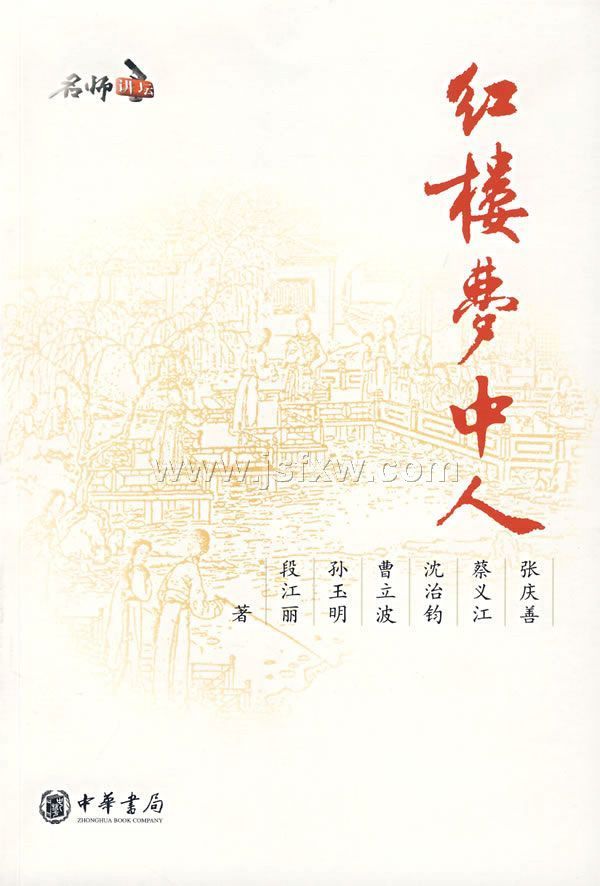 名师讲坛
红楼梦中人
www.jsfxw.com
张庆善
蔡义江
沈治钧
曹立波
孙玉明
段江丽
著
中华书局
ZHONGHUA BOOK COMPANY